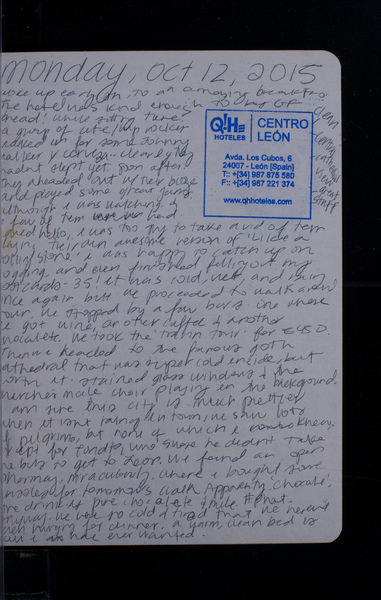 Monday, Oct 12, 2015
woke up early on, to an amazing breakfast.
The hotel was kind enough to buy GF
bread! While eating there
a group of late/ rocker
walked in for some Johnny
walker & cerveza. Clearly they
hadnt slept yet. Soon after
they headed out w/ their
and played some great jams.
Although I was watching &
a few of them had
hello, I was too shy to take a vid of them
playing their own awesome version of "like a
rolling stone". I was happy to catch up on
and even finished filling out my
postcards- 35! It was cold, wet, and rainy
once again but we proceeded to walk around
town. We stopped by a few bars. One where
we got wine, another coffee & another
chocolate. We took the train tour for
Then we headed to the famous goth
cathedral that was super cold inside, but
worth it. stained glass windows & the
churches male choir playing in the background.
I am sure this city is much prettier
when it isnt raining in town, we saw lots
of pilgrims, but none of which we knew.
Except for who swore he didnt take
the bus to get to Leon. We found an open
pharmacy, miraculously, where I bought some
insoles for tomorrows walk. Apparently chocolate
pure chocolate & milk
anyway. We were so cold & tired that we werent
even hungry for dinner. A warm, clean bed is
all I have ever wanted.
clean
QHE
HOTELES
CENTRO
LEÓN
Avda. Los Cubos, 6
24007 - León [Spain]
T.: +[34] 987 875 580
F.: +[34] 987 221 374
www.qhhoteles.com
staff